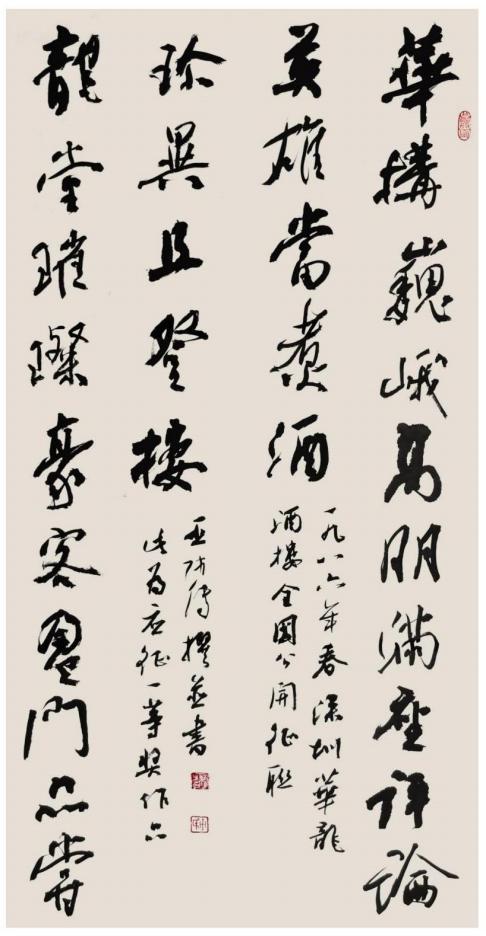 華構巍峨高朋滿座評論
英雄當煮酒
龍堂璀璨豪客盈門品嘗
珍異且登樓
一九八六年春深圳華龍
酒樓全國公開征聯
此為应征一等奖作品
撰並書